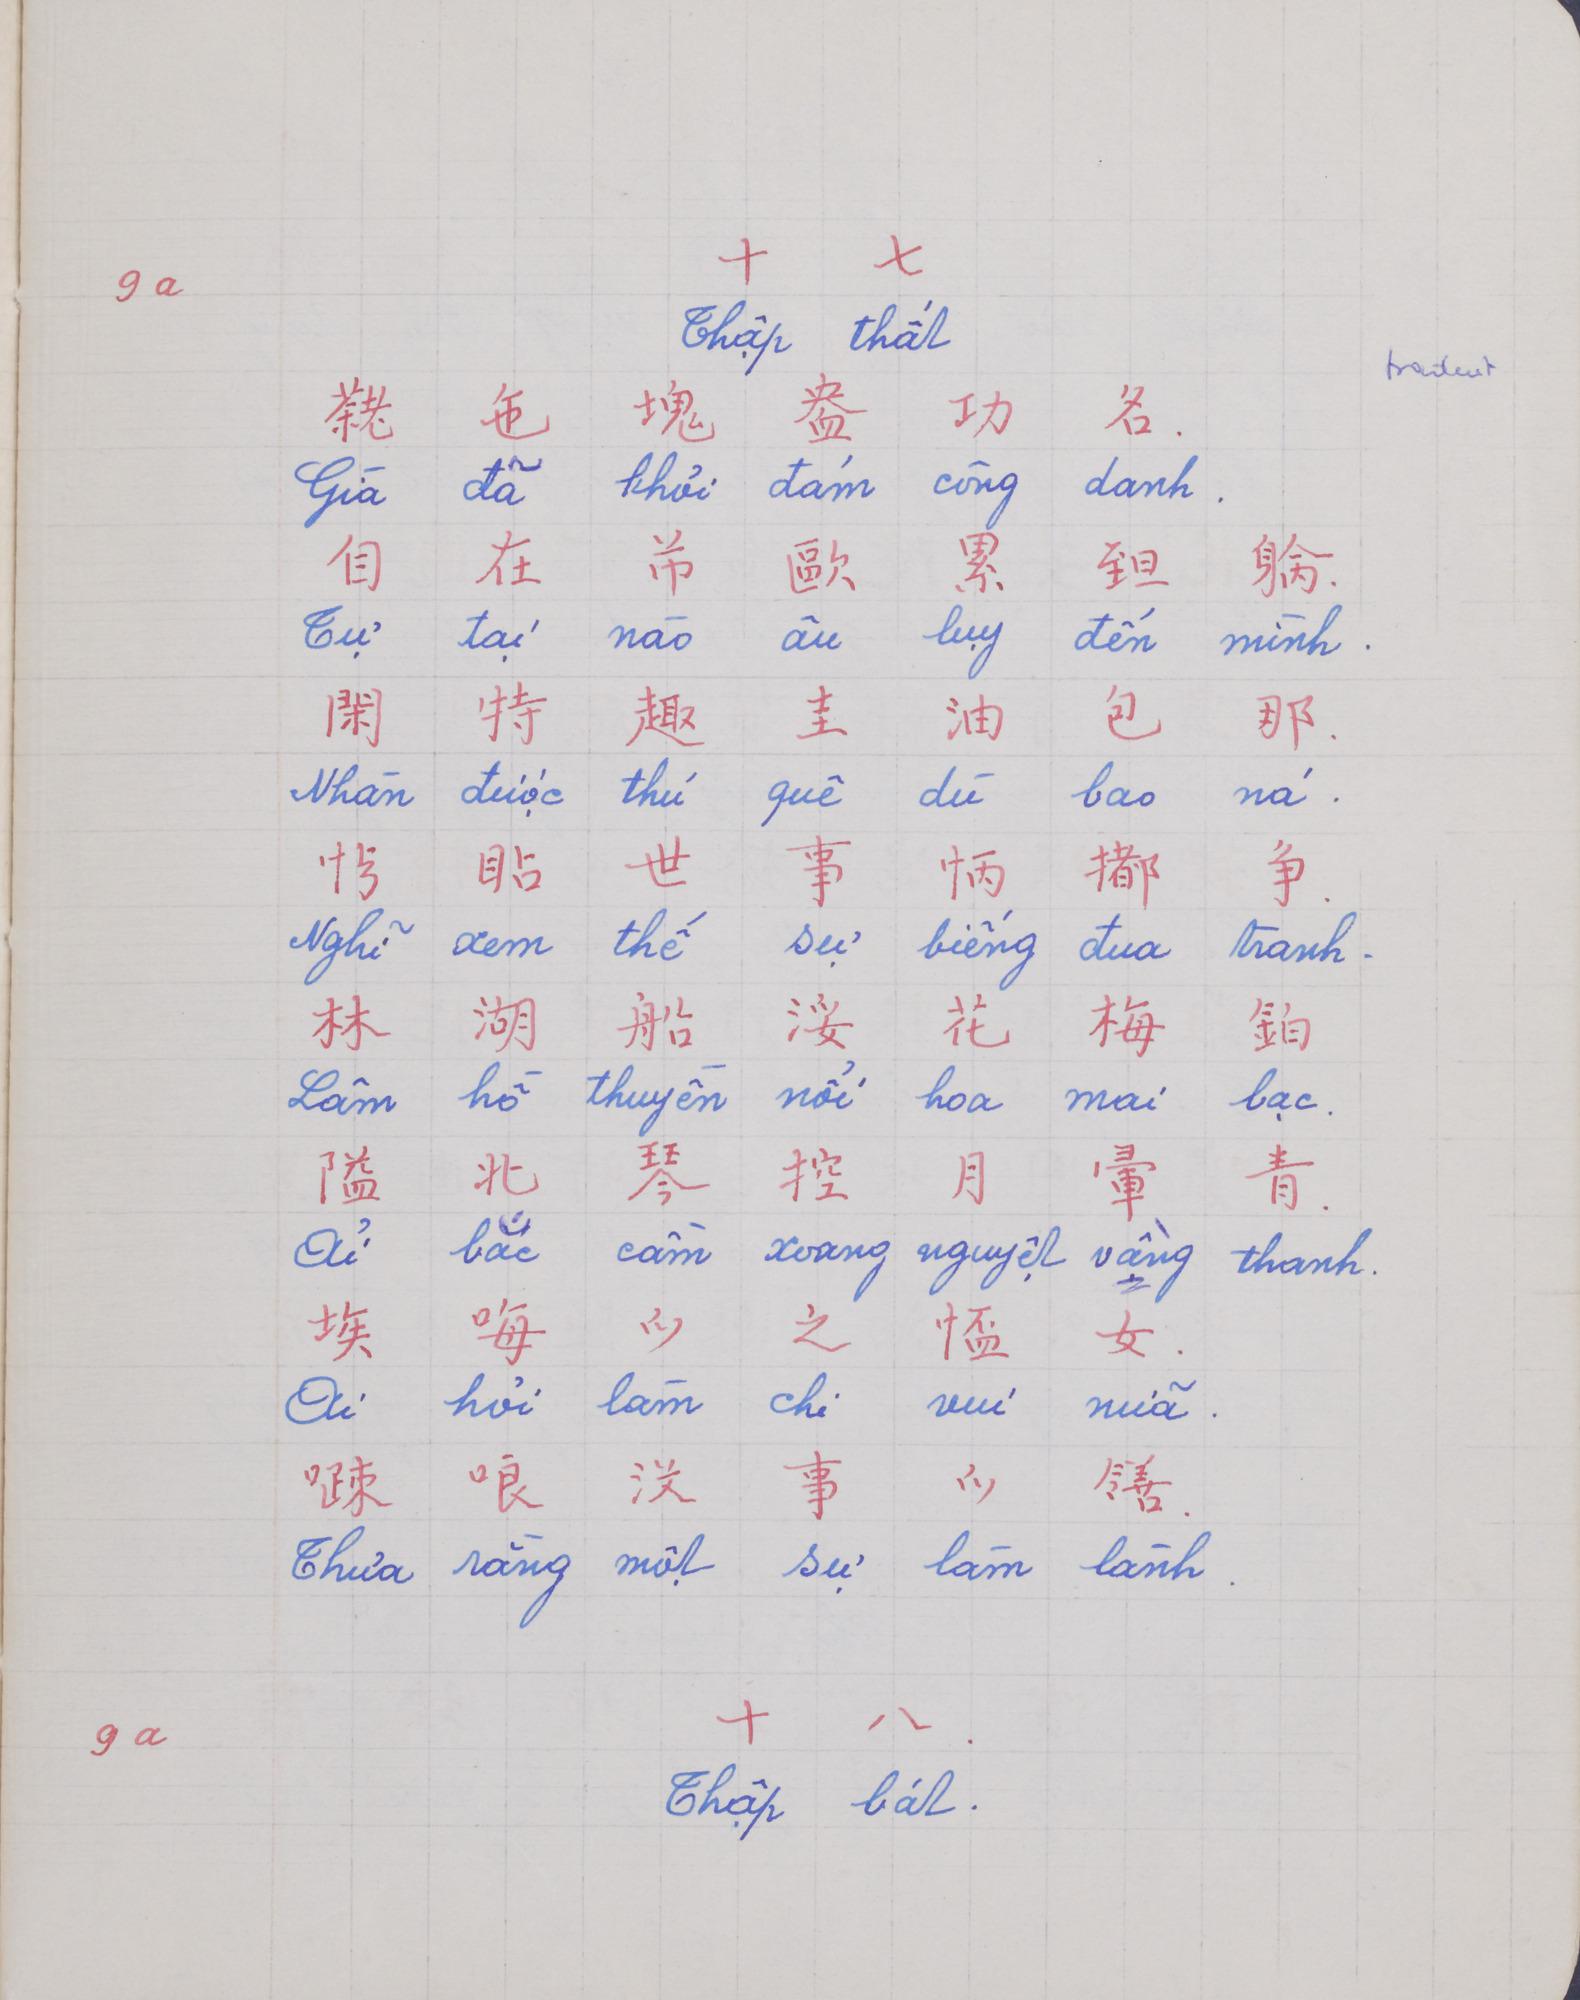 9 a
十 七
Thập thất
traduct
𦓅 㐌 塊 盎 功 名.
Già đã khỏi đám công danh.
自 在 芇 歐 累 𦤾 𨉟.
Tự tại nào âu lụy đến mình.
閑 特 趣 圭 油 包 那.
Nhàn được thú quê dù bao ná.
𢪀 䀡 世 事 怲 𢵻 争.
Nghĩ xem thế sự biếng đua tranh.
林 湖 船 浽 花 梅 鉑
Lâm hồ thuyền nổi hoa mai bạc.
隘 北 琴 控 月 暈 青.
Ải bắc cầm xoang nguyệt vầng thanh.
埃 𠳨 𫜵 之 𢝙 女.
Ai hỏi làm chi vui nữa.
𠽔 哴 沒 事 𫜵 𫅜.
Thưa rằng một sự làm lành.
9 a
十 八.
Thập bát.